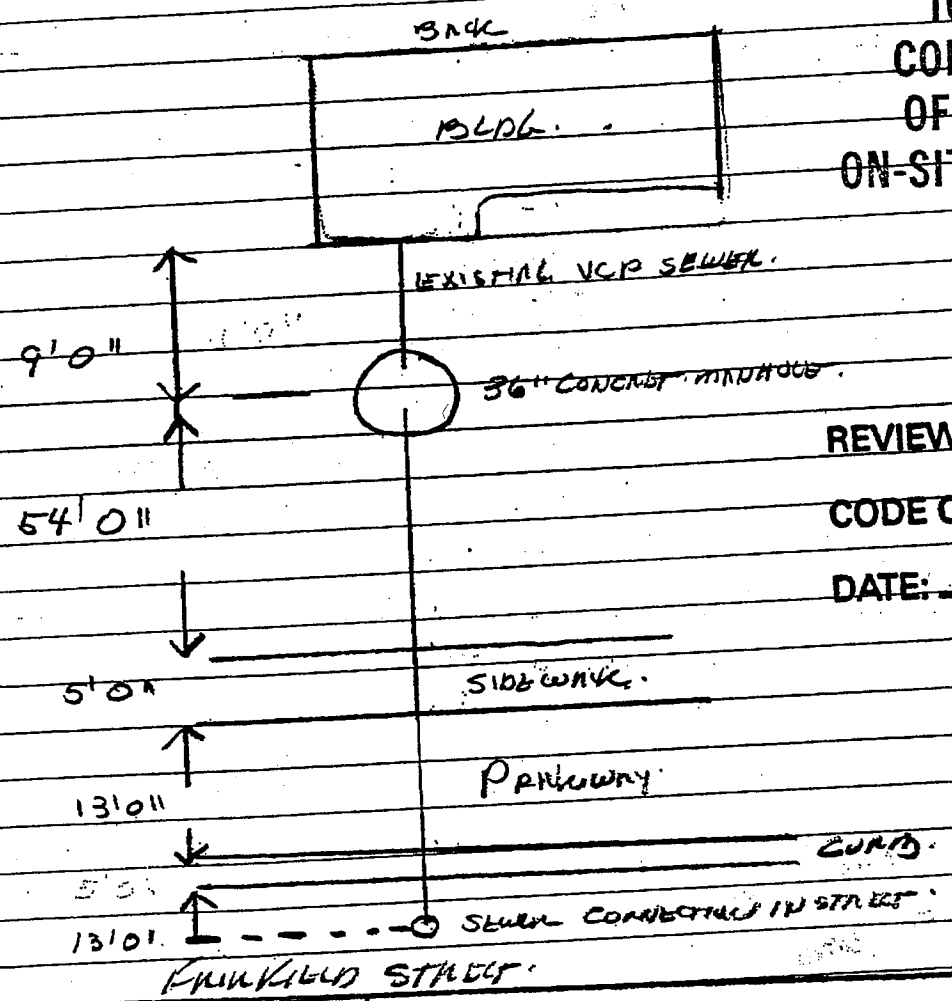 BACK
CO
OF
BLDG.
ON-SI
EXISTING VCP SEWER.
9'0"
36" CONCRET MANHOLE.
REVIEW
54'0"
CODE
DATE:
SIDEWALK.
5'0"
PARKWAY.
13'0"
CURB.
SEWER CONNECTION IN STREET.
13'0"
FAIRFIELD STREET.